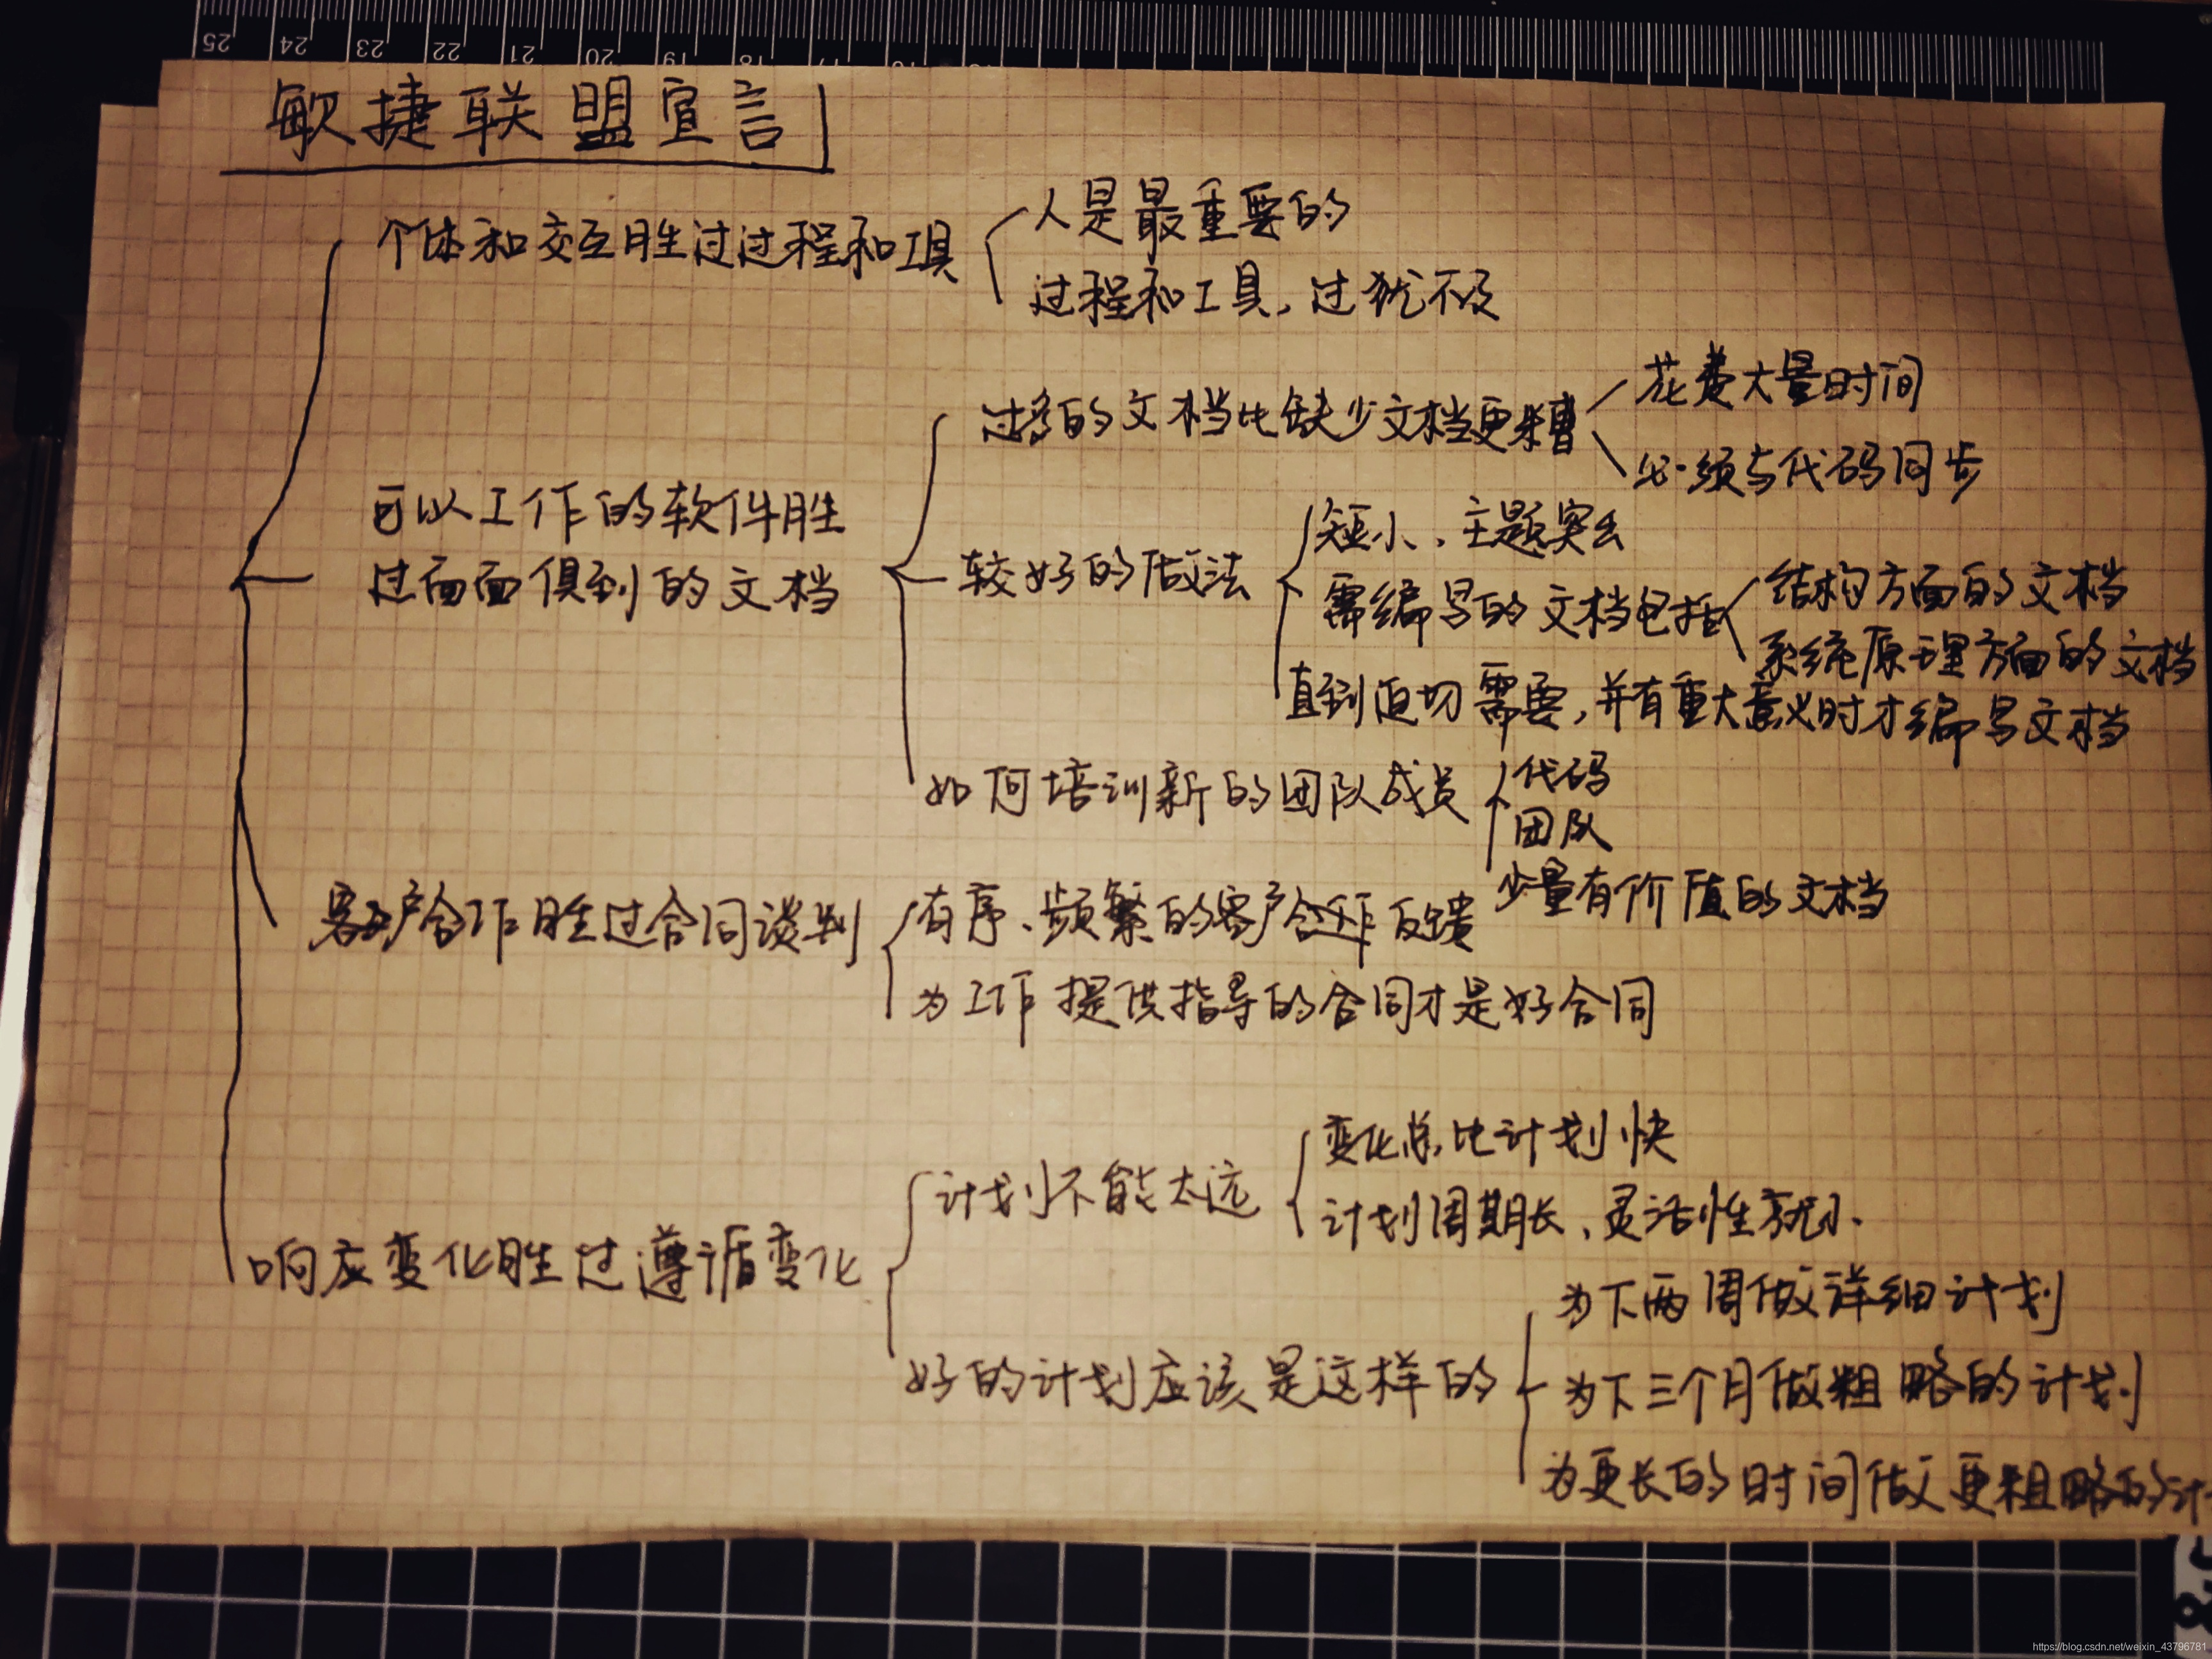 25 24 23 22 21 20 19 18 17
敏捷联盟宣言
个体和交互胜过过程和工具
人是最重要的
过程和工具,过犹不及
可以工作的软件胜
过面面俱到的文档
过多的文档比缺少文档更糟
花费大量时间
必须与代码同步
较好的做法
短小、主题突出
需编写的文档包括
结构方面的文档
系统原理方面的文档
直到迫切需要,并有重大意义时才编写文档
如何培训新的团队成员
代码
团队
少量有价值的文档
客户合作胜过合同谈判
有序、频繁的客户合作反馈
为工作提供指导的合同才是好合同
响应变化胜过遵循变化
计划不能太远
变化总比计划快
计划周期长、灵活性就小.
好的计划应该是这样的
为下两周做详细计划
为下三个月做粗略的计划
为更长的时间做更粗略的计
https://blog.csdn.net/weixin_43796781